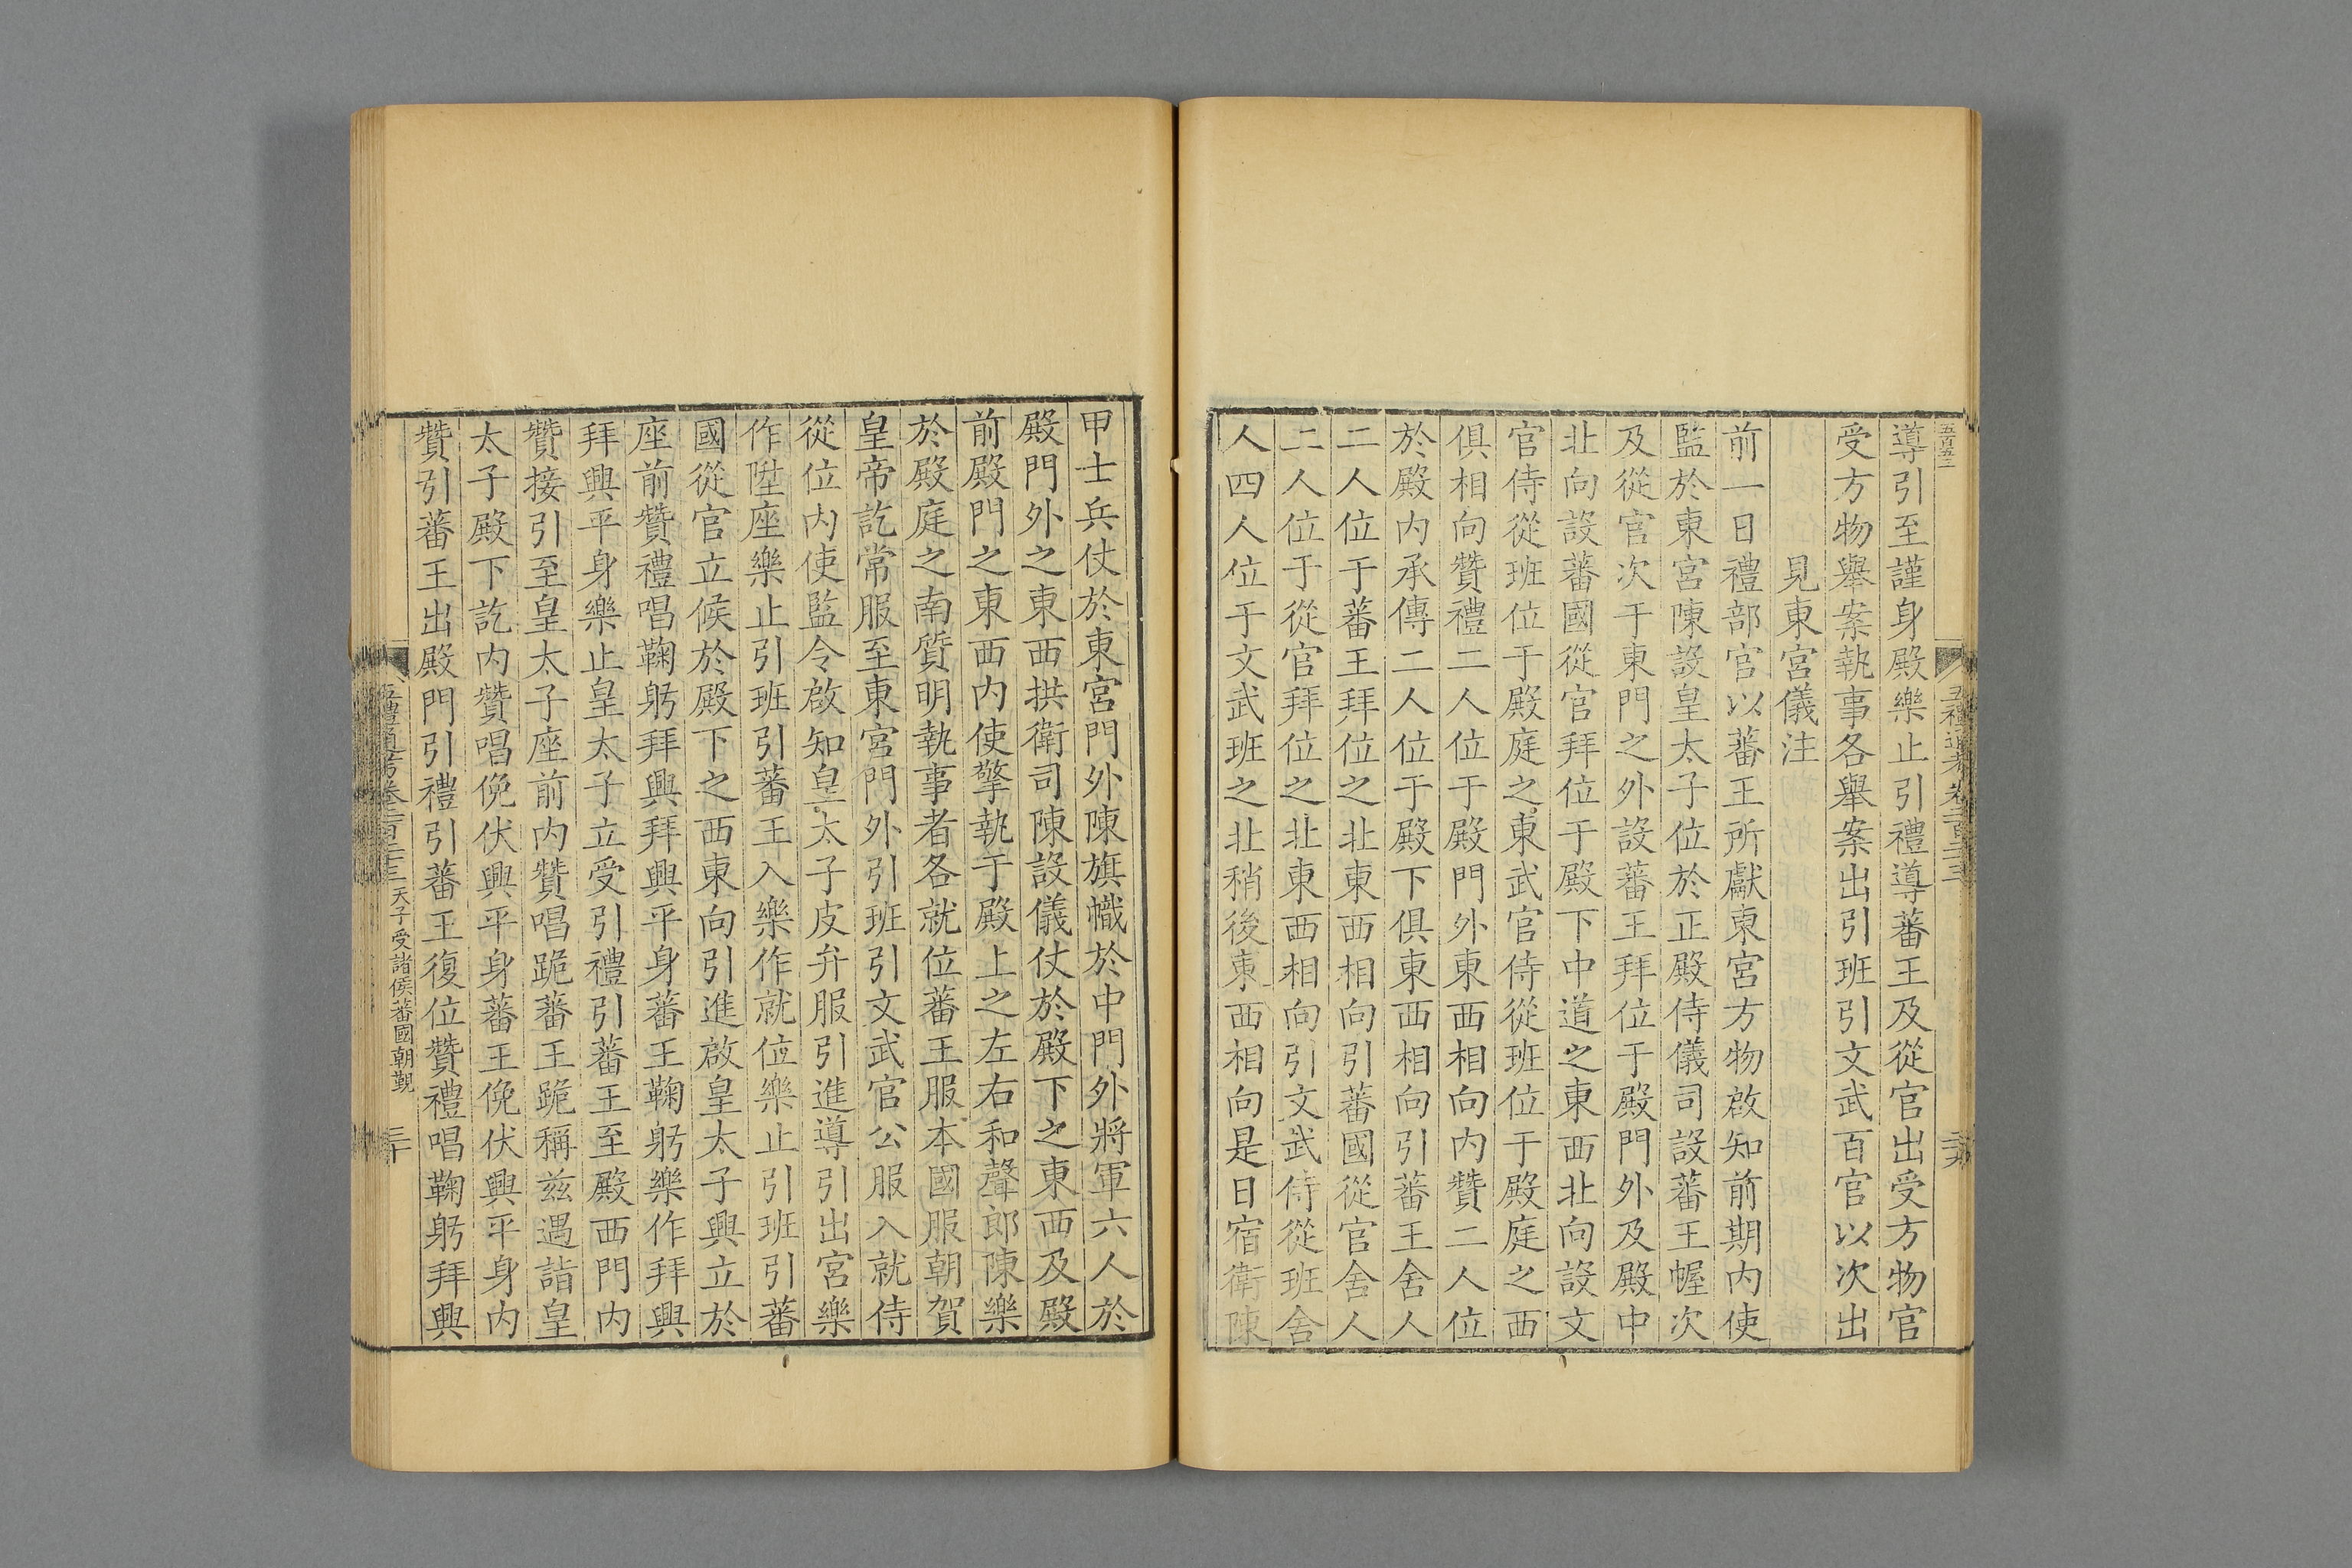 導引至謹身殿樂止引禮導蕃王及從官出受方物官
受方物舉案執事各舉案出引班引文武百官以次出
見東宮儀注
前一日禮部官以蕃王所獻東宮方物啟知前期内使
監於東宮陳設皇太子位於正殿侍儀司設蕃王幄次
及從官次于東門之外設蕃王拜位于殿門外及殿中
北向設蕃國從官拜位于殿下中道之東西北向設文
官侍從班位于殿庭之東武官侍從班位于殿庭之西
俱相向贊禮二人位于殿門外東西相向内贊二人位
於殿内承傳二人位于殿下俱東西相向引蕃王舍人
二人位于蕃王拜位之北東西相向引蕃國從官舍人
二人位于從官拜位之北東西相向引文武侍從班舍
人四人位于文武班之北稍後東西相向是日宿衛陳
甲士兵仗於東宮門外陳旗幟於中門外將軍六人於
殿門外之東西拱衛司陳設儀仗於殿下之東西及殿
前殿門之東西内使擎執于殿上之左右和聲郎陳樂
於殿庭之南質明執事者各就位蕃王服本國服朝賀
皇帝訖常服至東宮門外引班引文武官公服入就侍
從位内使監令啟知皇太子皮弁服引進導引出宮樂
作陞座樂止引班引蕃王入樂作就位樂止引班引蕃
國從官立候於殿下之西東向引進啟皇太子興立於
座前贊禮唱鞠躬拜興拜興平身蕃王鞠躬樂作拜興
拜興平身樂止皇太子立受引禮引蕃王至殿西門内
贊接引至皇太子座前内贊唱跪蕃王跪稱兹遇詣皇
太子殿下訖内贊唱俛伏興平身蕃王俛伏興平身内
贊引蕃王出殿門引禮引蕃王復位贊禮唱鞠躬拜興
五禮通考卷二百二十三 天子受諸侯蕃國朝覲 三十